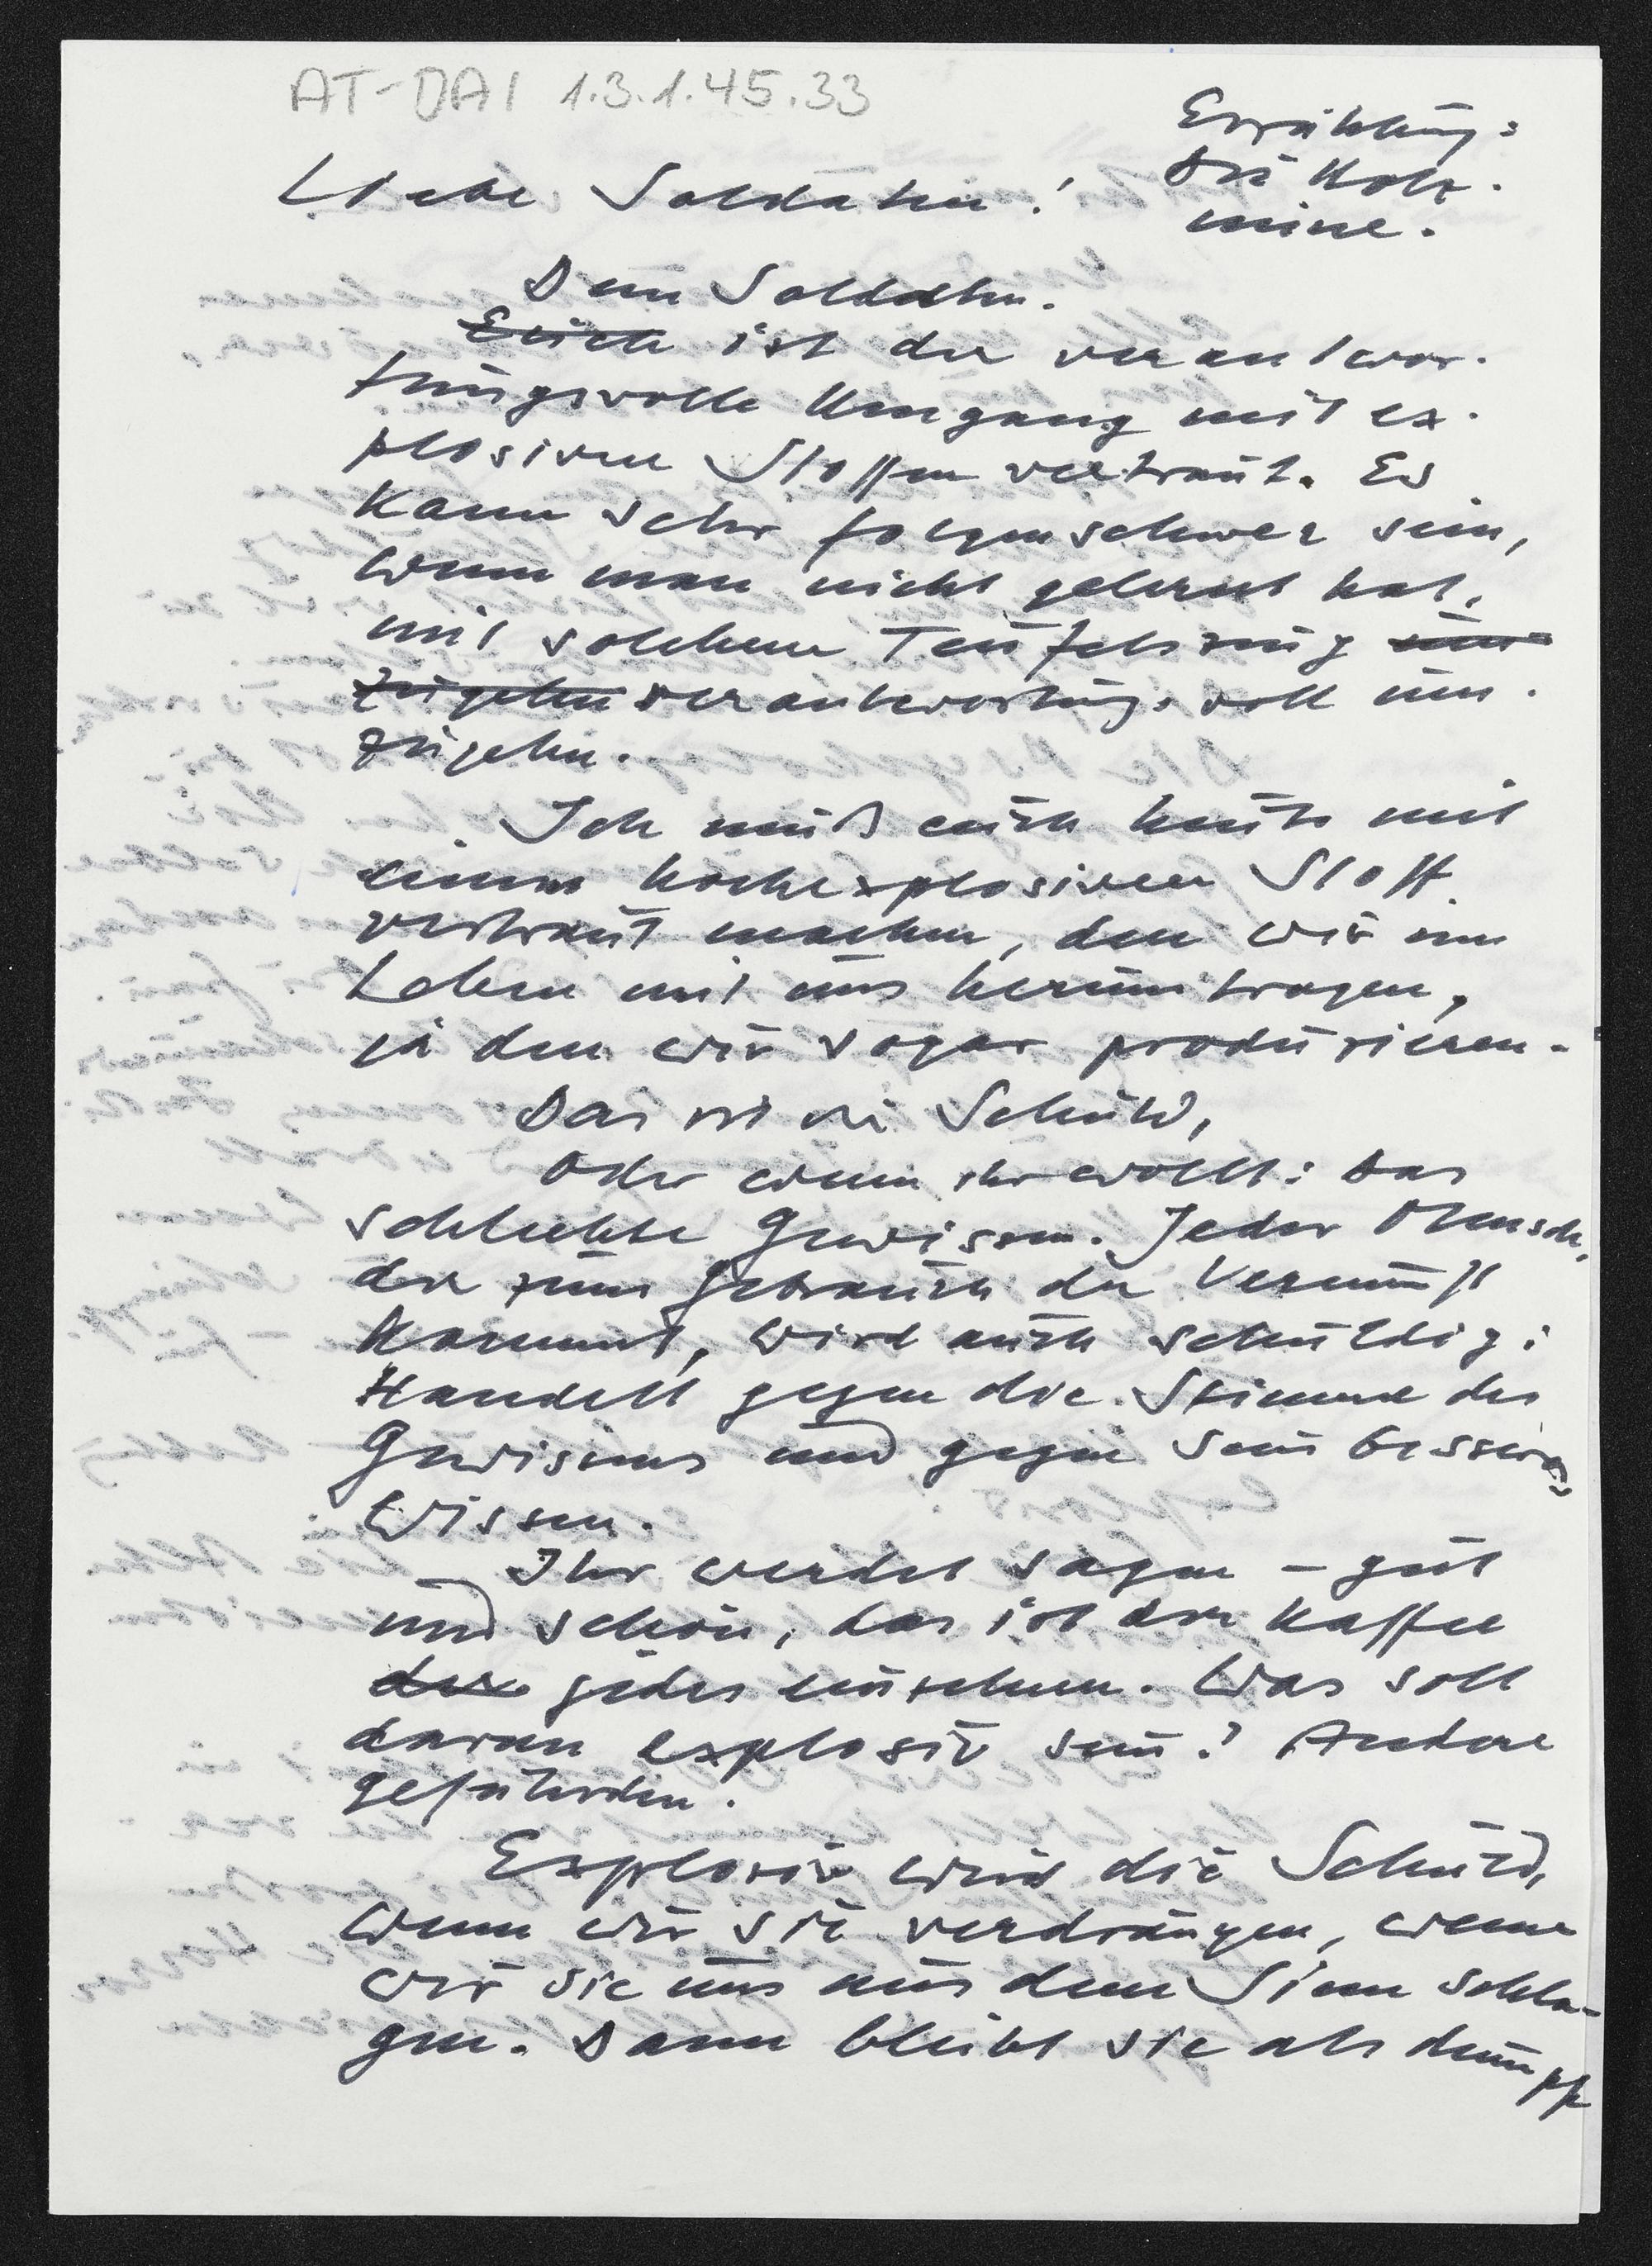 AT-DAI 1.3.1.45.33
Erzählung:
Die Holz-
mine.
Liebe Soldaten!
Dem Soldaten.
Euch ist der verantwor-
tungsvolle Umgang mit ex-
plosiven Stoffen vertraut. Es
kann sehr folgenschwer sein,
wenn man nicht gelernt hat,
mit solchem Teufelszeug um
zugehen verantwortungsvoll um-
zugehn.
Ich muß euch heute mit
einem hochexplosiven Stoff
vertraut machen, den wir im
Leben mit uns herumtragen,
ja den wir sogar produzieren.
Das ist die Schuld,
Oder wenn ihr wollt: Das
schlechte Gewissen. Jeder Mensch,
der zum Gebrauch der Vernunft
kommt, wird auch schuldig:
Handelt gegen die Stimme des
Gewissens und gegen sein besseres
Wissen.
Ihr werdet sagen – gut
und schön, das ist der Kaffee
der jedes einzelnen. Was soll
daran explosiv sein? Andere
gefährden.
Explosiv wird die Schuld,
wenn wir sie verdrängen, wenn
wir sie uns aus dem Sinn schla-
gen. Dann bleibt sie als dumpfe